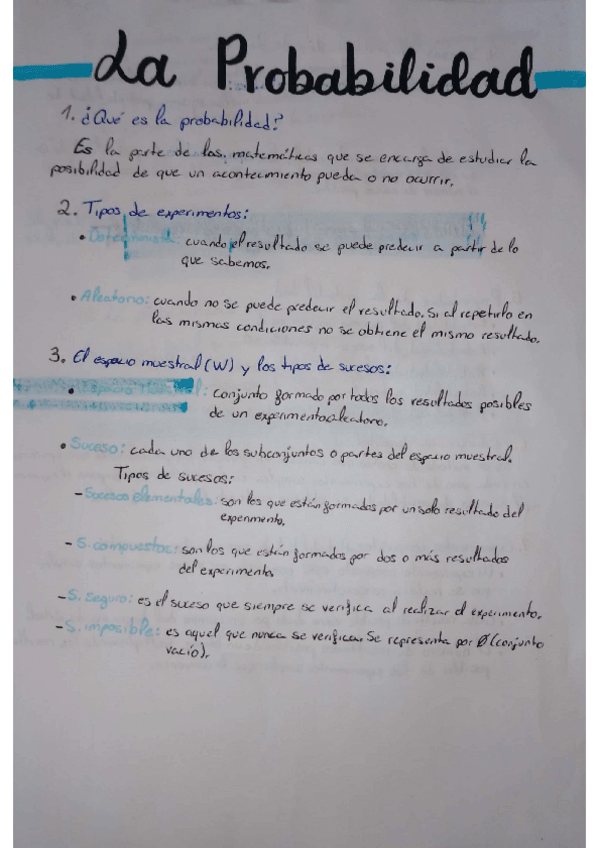 La Probabilidad
1. ¿Qué es la probabilidad?
Es la parte de las matemáticas que se encarga de estudiar la
posibilidad de que un acontecimiento pueda o no ocurrir.
2. Tipos de experimentos:
• cuando el resultado se puede predecir a partir de lo
que sabemos.
• Aleatorio: cuando no se puede predecir el resultado. Si al repetirlo en
las mismas condiciones no se obtiene el mismo resultado.
3. El espacio muestral (W) y los tipos de sucesos:
• : conjunto formado por todos los resultados posibles
de un experimento aleatorio.
• Suceso: cada uno de los subconjuntos o partes del espacio muestral.
Tipos de sucesos:
- Sucesos elementales: son los que están formados por un solo resultado del
experimento.
- S. compuestos: son los que están formados por dos o más resultados
del experimento.
- S. Seguro: es el suceso que siempre se verifica al realizar el experimento.
- S. imposible: es aquel que nunca se verifica. Se representa por Ø (conjunto
vacío).